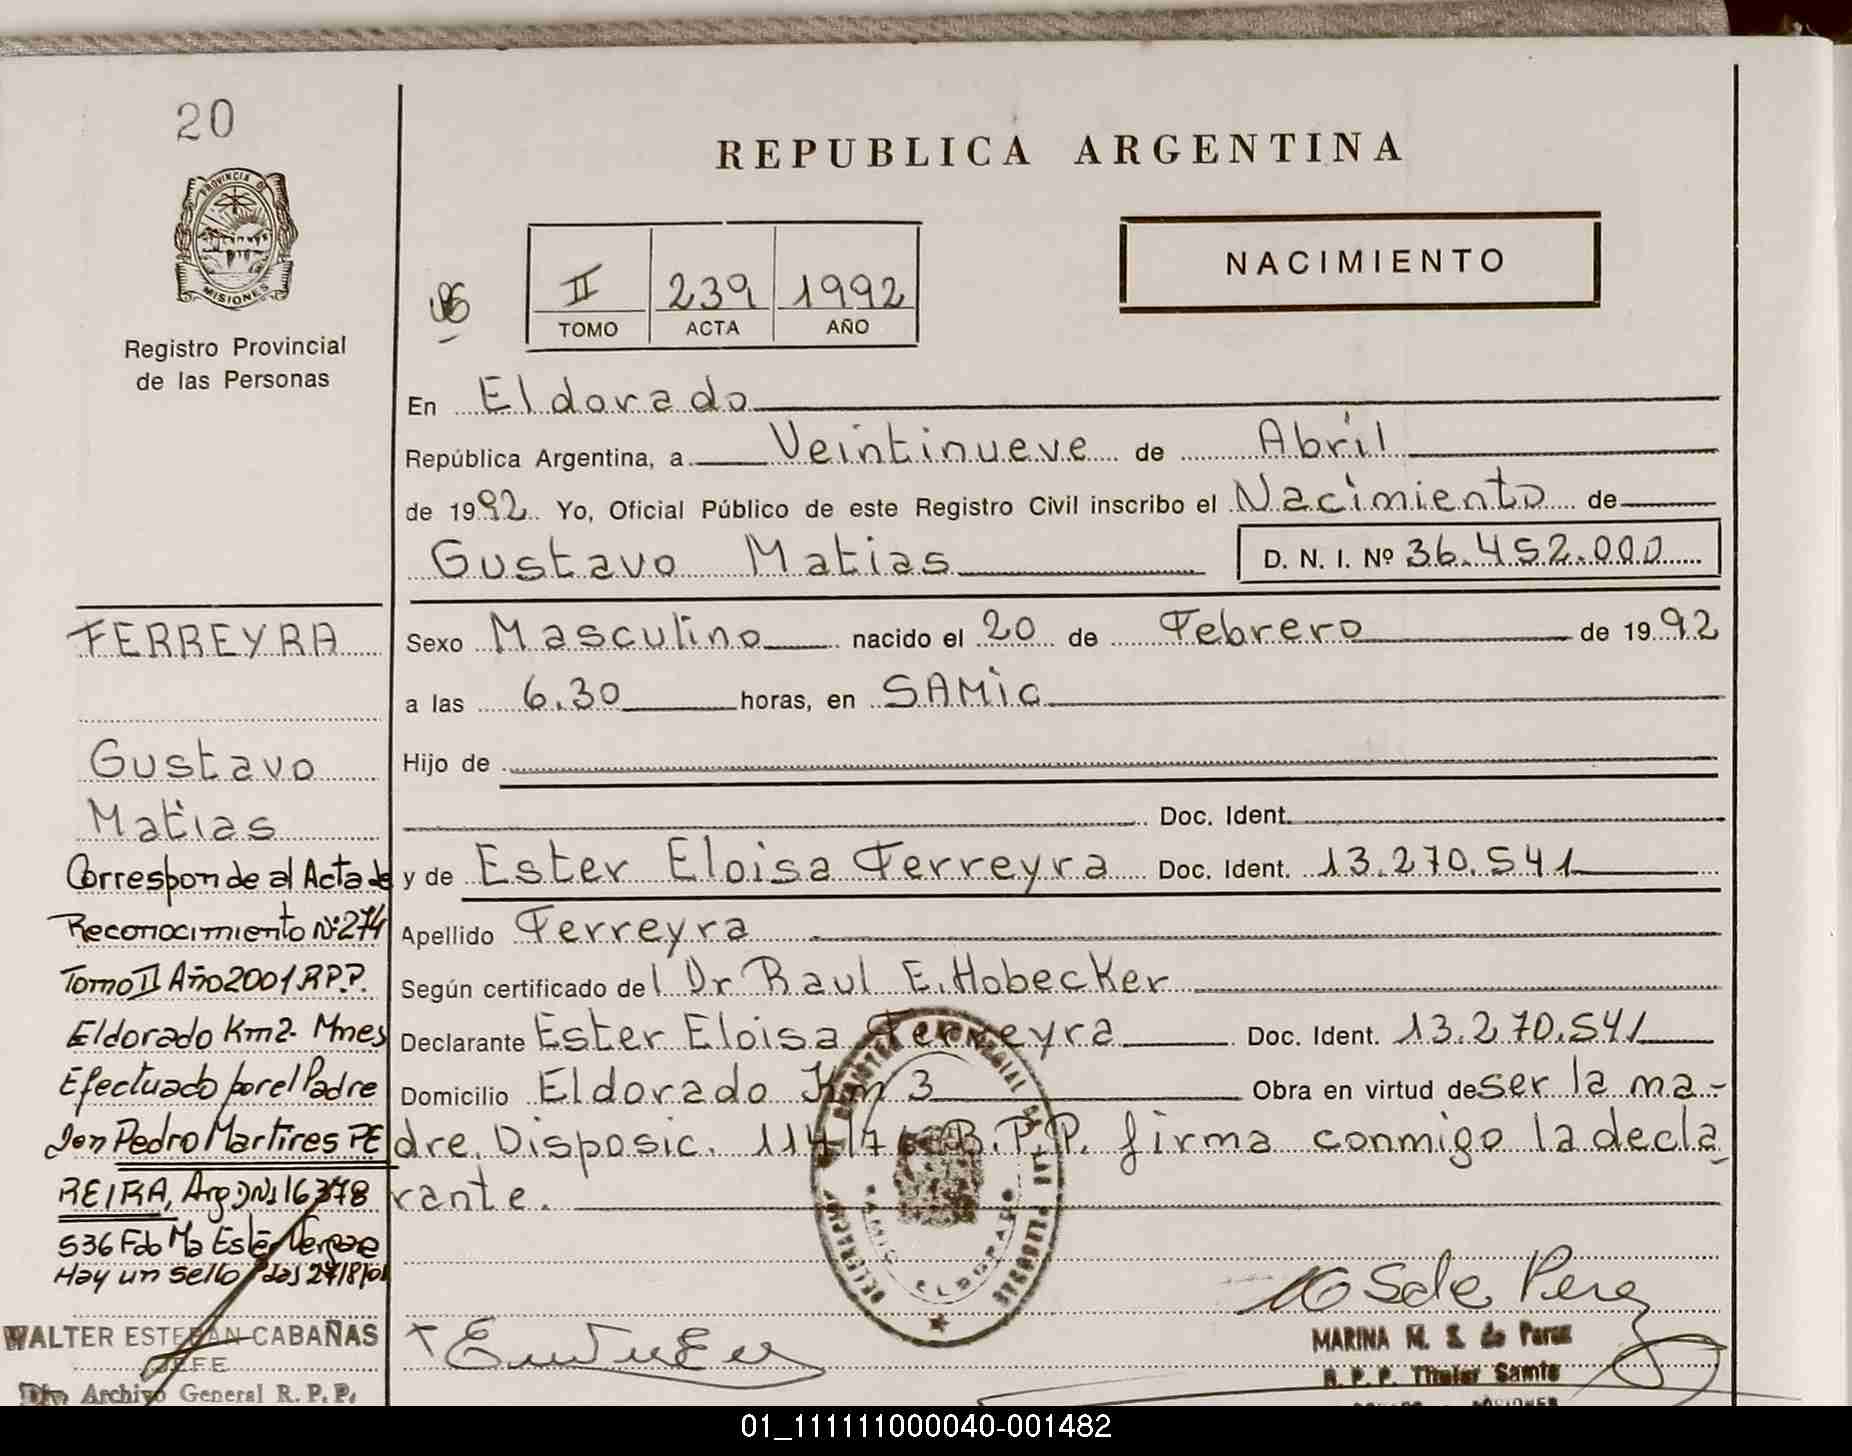 20
PROVINCIA DE
MISIONES
Registro Provincial
de las Personas
REPUBLICA ARGENTINA
NACIMIENTO
II 239 1992
TOMO ACTA AÑO
En Eldorado
República Argentina, a Veintinueve de Abril
de 1992 Yo, Oficial Público de este Registro Civil inscribo el Nacimiento de
Gustavo Matias D. N. I. Nº 36.452.000
Sexo Masculino nacido el 20 de Febrero de 1992
a las 6.30 horas, en SAMiC
Hijo de
Doc. Ident.
y de Ester Eloisa Ferreyra Doc. Ident. 13.270.541
Apellido Ferreyra
Según certificado del Dr Raul E. Hobecker
Declarante Ester Eloisa Ferreyra Doc. Ident. 13.270.541
Domicilio Eldorado Km 3 Obra en virtud de ser la ma-
dre. Disposic. 114/76 R.P.P. firma conmigo la decla
rante.
FERREYRA
Gustavo
Matias
Corresponde al Acta de
Reconocimiento Nº 274
Tomo II Año 2001 R.P.P.
Eldorado Km2- Mnes
Efectuado por el Padre
Don Pedro Martires PE
REIRA, Arg DNI 16378
536 Fdo Ma Ester
Hay un sello 27/8/01
WALTER ESTEBAN CABAÑAS
JEFE
Div. Archivo General R. P. P.
REGISTRO PROVINCIAL DE LAS PERSONAS
DELEGACION
SAMIC ELDORADO
M Sde Perez
MARINA M. S. de Perez
R. P. P. Titular Samic
01_111111000040-001482